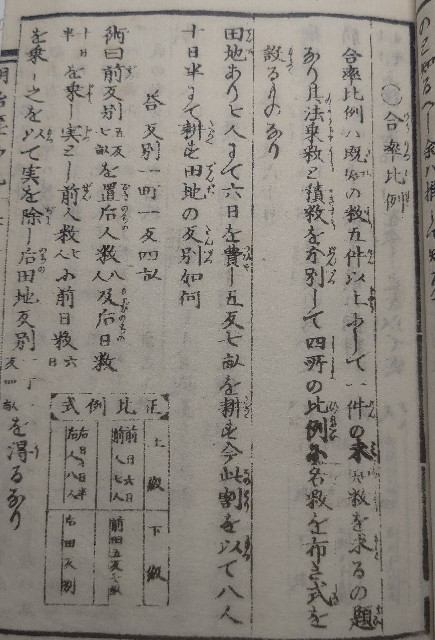 ○合率比例
合率比例ハ既知の数五件以上ありて一件の未知数を求るの題
あり其法乗数と積数を分別して四所の比例に名数を布き式を
設るものあり
田地あり七人まて六日を費し五反七畝を耕す今此割を以て八人
十日半まて耕す田地の反別如何
答 反別一町一反四畝
術曰前反別五反七畝を置后人数八人及后日数
十日半を乗し実とし前人数七人に前日数六日
を乗し之を以て実を除し后田地反別一丁一反四畝を得るなり
正比例式
上級
下級
前日六日
前人七人
前田五反七畝
后日十日半
后人八人
后田反別